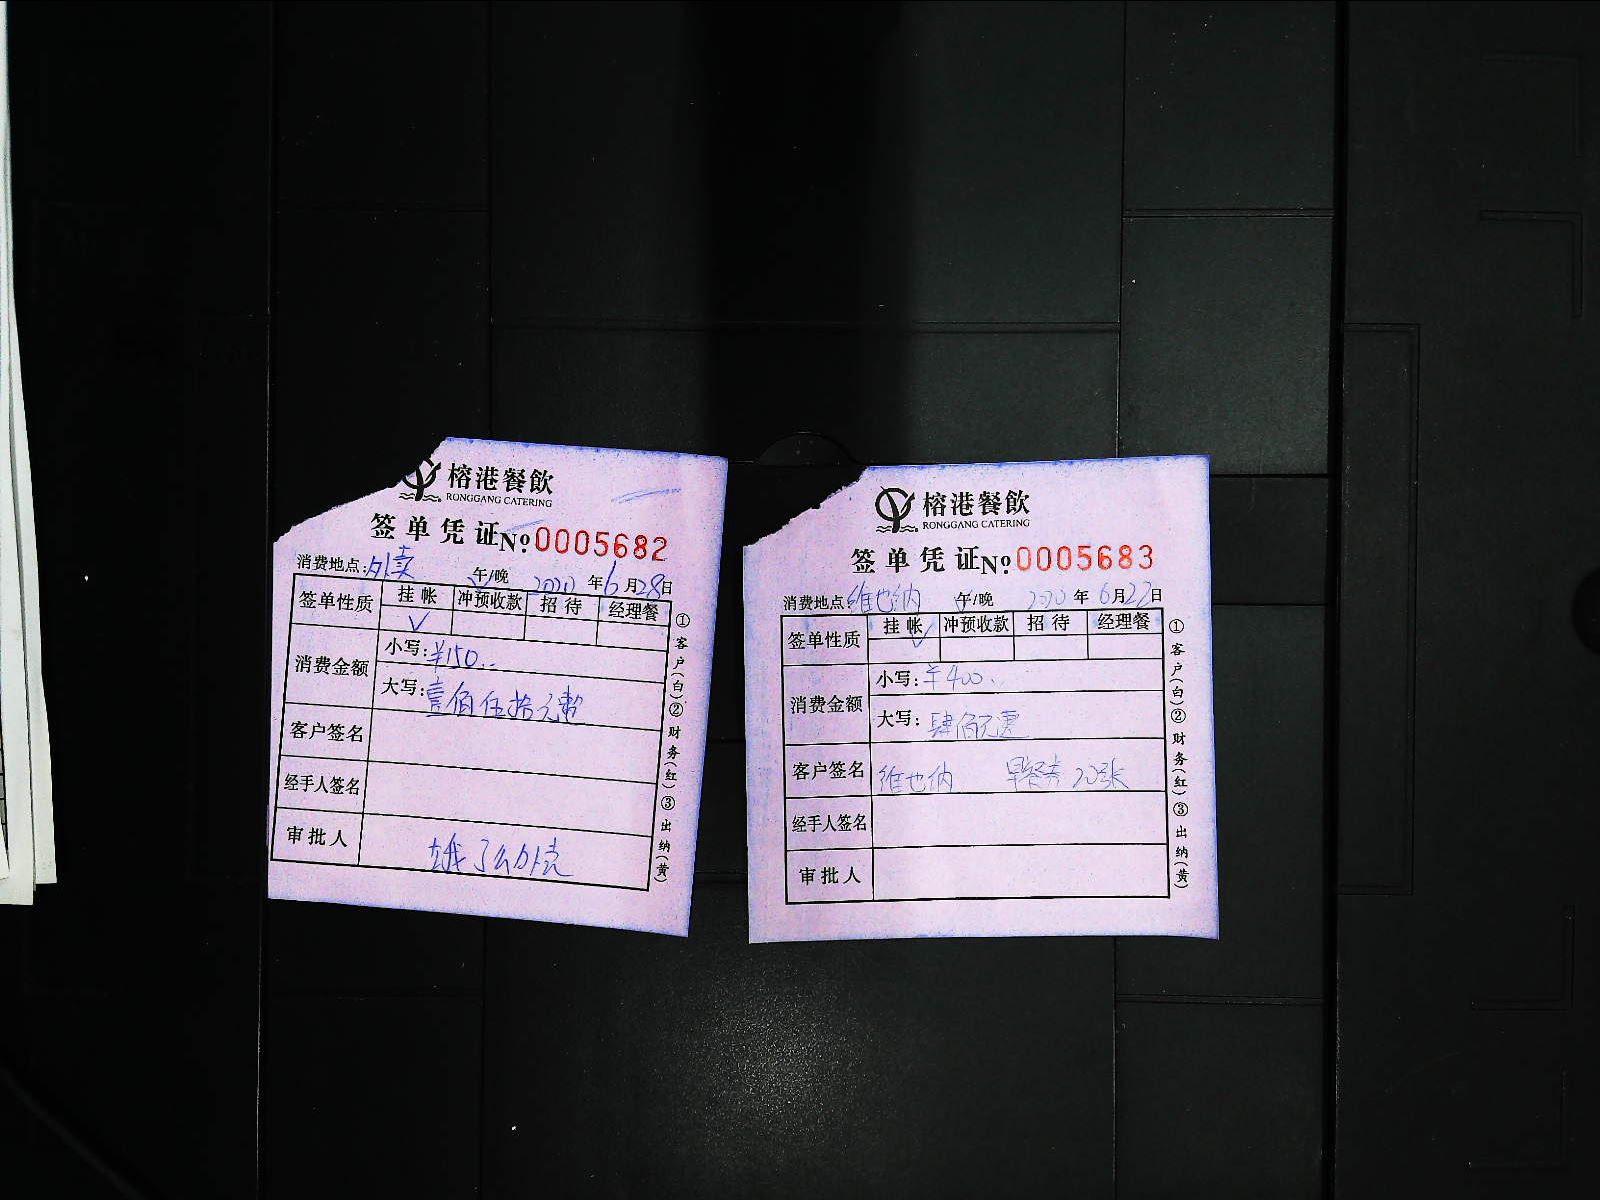 榕港餐飲
RONGGANG CATERING
签单凭证 No 0005682
消费地点:外卖 午/晚 2020年6月28日
签单性质 挂帐 冲预收款 招待 经理餐
✓
消费金额 小写:¥150..
大写:壹佰伍拾元整
客户签名
经手人签名
审批人 饿了么外卖
①客户(白)②财务(红)③出纳(黄)
榕港餐飲
RONGGANG CATERING
签单凭证 No 0005683
消费地点 维也纳 午/晚 2020年6月22日
签单性质 挂帐 冲预收款 招待 经理餐
✓
消费金额 小写:¥400..
大写:肆佰元
客户签名 维也纳 早餐券20张
经手人签名
审批人
①客户(白)②财务(红)③出纳(黄)